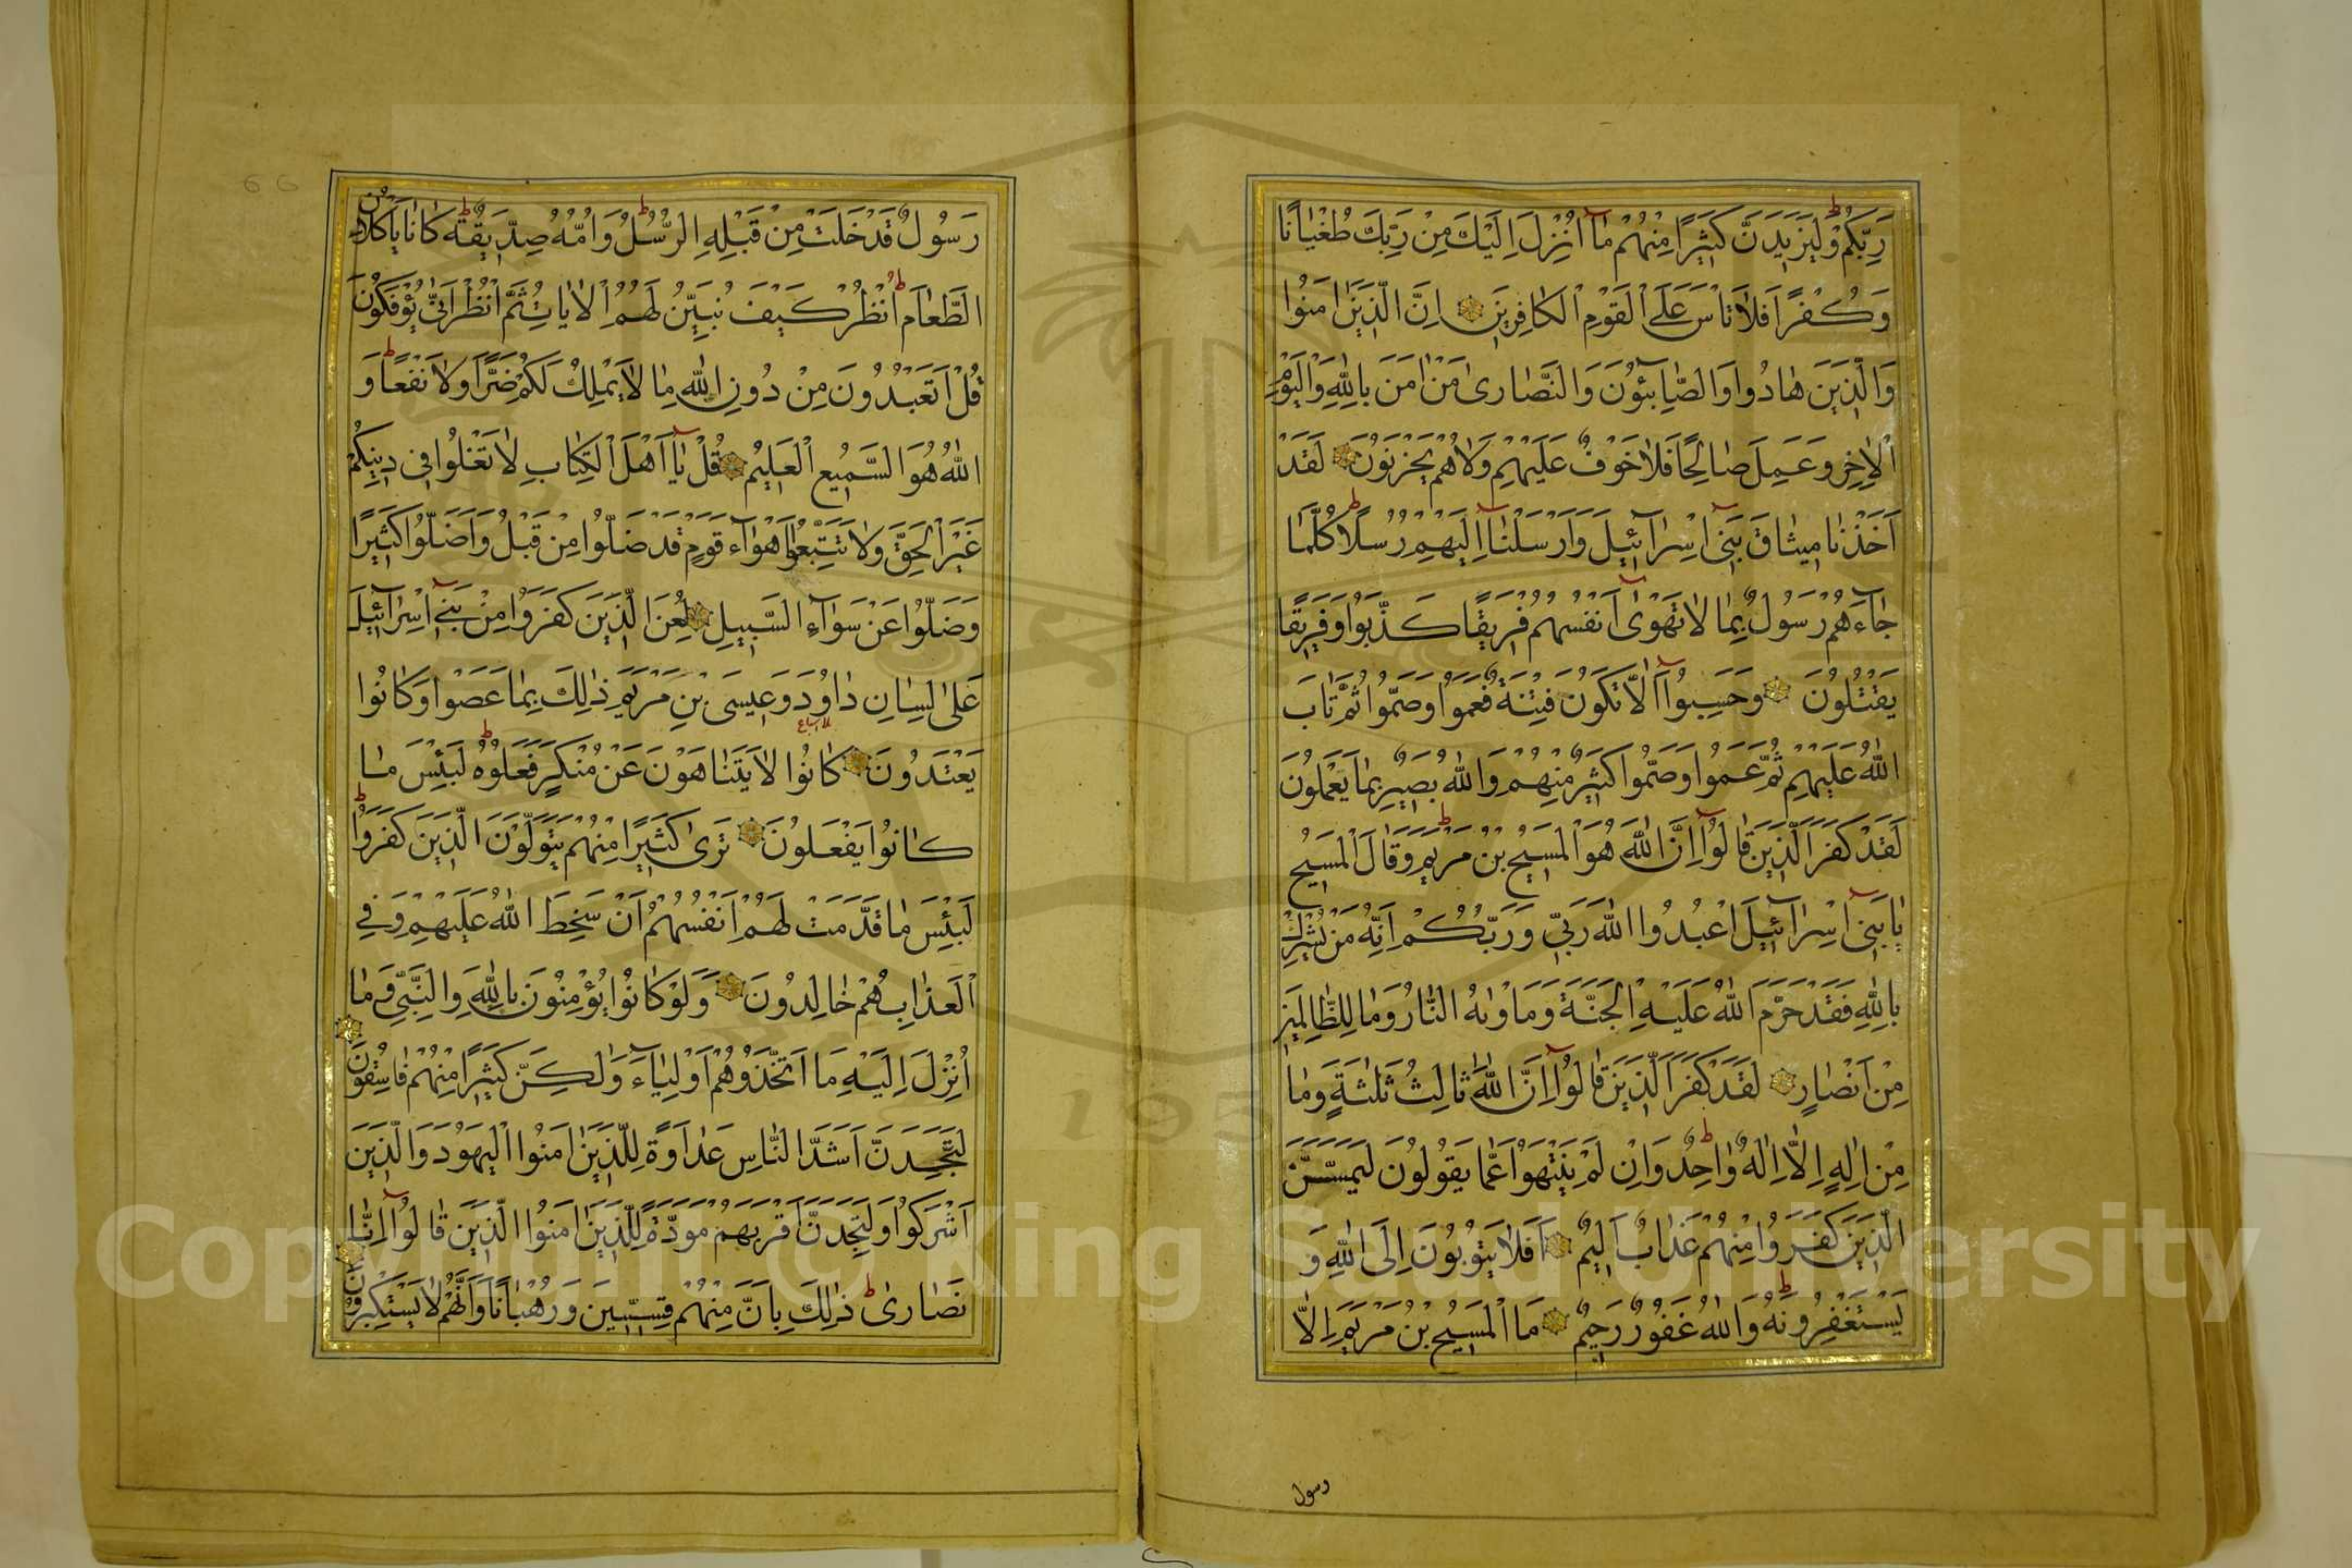 رَبِّكُمْ وَلَيَزِيدَنَّ كَثِيرًا مِنْهُمْ مَٓا اُنْزِلَ اِلَيْكَ مِنْ رَبِّكَ طُغْيَانًا
وَكُفْرًا فَلَا تَاْسَ عَلَى الْقَوْمِ الْكَافِرِينَ اِنَّ الَّذِينَ اٰمَنُوا
وَالَّذِينَ هَادُوا وَالصَّابِئُونَ وَالنَّصَارٰى مَنْ اٰمَنَ بِاللّٰهِ وَالْيَوْمِ
الْاٰخِرِ وَعَمِلَ صَالِحًا فَلَا خَوْفٌ عَلَيْهِمْ وَلَا هُمْ يَحْزَنُونَ لَقَدْ
اَخَذْنَا مِيثَاقَ بَنِٓى اِسْرَٓائِيلَ وَاَرْسَلْنَٓا اِلَيْهِمْ رُسُلًا كُلَّمَا
جَٓاءَهُمْ رَسُولٌ بِمَا لَا تَهْوٰٓى اَنْفُسُهُمْ فَرِيقًا كَذَّبُوا وَفَرِيقًا
يَقْتُلُونَ وَحَسِبُٓوا اَلَّا تَكُونَ فِتْنَةٌ فَعَمُوا وَصَمُّوا ثُمَّ تَابَ
اللّٰهُ عَلَيْهِمْ ثُمَّ عَمُوا وَصَمُّوا كَثِيرٌ مِنْهُمْ وَاللّٰهُ بَصِيرٌ بِمَا يَعْمَلُونَ
لَقَدْ كَفَرَ الَّذِينَ قَالُٓوا اِنَّ اللّٰهَ هُوَ الْمَسِيحُ بْنُ مَرْيَمَ وَقَالَ الْمَسِيحُ
يَا بَنِٓى اِسْرَٓائِيلَ اعْبُدُوا اللّٰهَ رَبِّى وَرَبَّكُمْ اِنَّهُ مَنْ يُشْرِكْ
بِاللّٰهِ فَقَدْ حَرَّمَ اللّٰهُ عَلَيْهِ الْجَنَّةَ وَمَاْوٰيهُ النَّارُ وَمَا لِلظَّالِمِينَ
مِنْ اَنْصَارٍ لَقَدْ كَفَرَ الَّذِينَ قَالُٓوا اِنَّ اللّٰهَ ثَالِثُ ثَلٰثَةٍ وَمَا
مِنْ اِلٰهٍ اِلَّا اِلٰهٌ وَاحِدٌ وَاِنْ لَمْ يَنْتَهُوا عَمَّا يَقُولُونَ لَيَمَسَّنَّ
الَّذِينَ كَفَرُوا مِنْهُمْ عَذَابٌ اَلِيمٌ اَفَلَا يَتُوبُونَ اِلَى اللّٰهِ وَ
يَسْتَغْفِرُونَهُ وَاللّٰهُ غَفُورٌ رَحِيمٌ مَا الْمَسِيحُ بْنُ مَرْيَمَ اِلَّا
رسول
رَسُولٌ قَدْ خَلَتْ مِنْ قَبْلِهِ الرُّسُلُ وَاُمُّهُ صِدِّيقَةٌ كَانَا يَاْكُلَانِ
الطَّعَامَ اُنْظُرْ كَيْفَ نُبَيِّنُ لَهُمُ الْاٰيَاتِ ثُمَّ انْظُرْ اَنّٰى يُؤْفَكُونَ
قُلْ اَتَعْبُدُونَ مِنْ دُونِ اللّٰهِ مَا لَا يَمْلِكُ لَكُمْ ضَرًّا وَلَا نَفْعًا وَ
اللّٰهُ هُوَ السَّمِيعُ الْعَلِيمُ قُلْ يَٓا اَهْلَ الْكِتَابِ لَا تَغْلُوا فِى دِينِكُمْ
غَيْرَ الْحَقِّ وَلَا تَتَّبِعُٓوا اَهْوَٓاءَ قَوْمٍ قَدْ ضَلُّوا مِنْ قَبْلُ وَاَضَلُّوا كَثِيرًا
وَضَلُّوا عَنْ سَوَٓاءِ السَّبِيلِ لُعِنَ الَّذِينَ كَفَرُوا مِنْ بَنِٓى اِسْرَٓائِيلَ
عَلٰى لِسَانِ دَاوُدَ وَعِيسَى بْنِ مَرْيَمَ ذٰلِكَ بِمَا عَصَوْا وَكَانُوا
يَعْتَدُونَ كَانُوا لَا يَتَنَاهَوْنَ عَنْ مُنْكَرٍ فَعَلُوهُ لَبِئْسَ مَا
كَانُوا يَفْعَلُونَ تَرٰى كَثِيرًا مِنْهُمْ يَتَوَلَّوْنَ الَّذِينَ كَفَرُوا
لَبِئْسَ مَا قَدَّمَتْ لَهُمْ اَنْفُسُهُمْ اَنْ سَخِطَ اللّٰهُ عَلَيْهِمْ وَفِى
الْعَذَابِ هُمْ خَالِدُونَ وَلَوْ كَانُوا يُؤْمِنُونَ بِاللّٰهِ وَالنَّبِىِّ وَمَا
اُنْزِلَ اِلَيْهِ مَا اتَّخَذُوهُمْ اَوْلِيَٓاءَ وَلٰكِنَّ كَثِيرًا مِنْهُمْ فَاسِقُونَ
لَتَجِدَنَّ اَشَدَّ النَّاسِ عَدَاوَةً لِلَّذِينَ اٰمَنُوا الْيَهُودَ وَالَّذِينَ
اَشْرَكُوا وَلَتَجِدَنَّ اَقْرَبَهُمْ مَوَدَّةً لِلَّذِينَ اٰمَنُوا الَّذِينَ قَالُٓوا اِنَّا
نَصَارٰى ذٰلِكَ بِاَنَّ مِنْهُمْ قِسِّيسِينَ وَرُهْبَانًا وَاَنَّهُمْ لَا يَسْتَكْبِرُونَ
66
Copyright © King Saud University
195